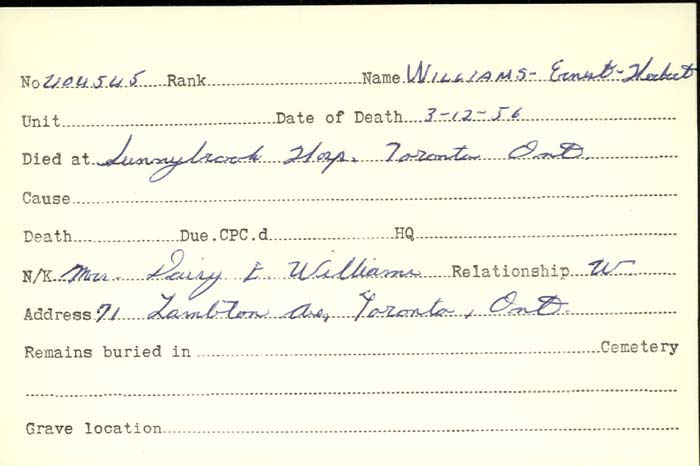 No 404545 Rank Name WILLIAMS - Ernest - Herbert
Unit Date of Death 3-12-56
Died at Sunnybrook Hosp. Toronto Ont.
Cause
Death Due.CPC.d HQ
N/K Mrs. Daisy E. Williams Relationship W
Address 71 Lambton Ave, Toronto, Ont.
Remains buried in Cemetery
Grave location